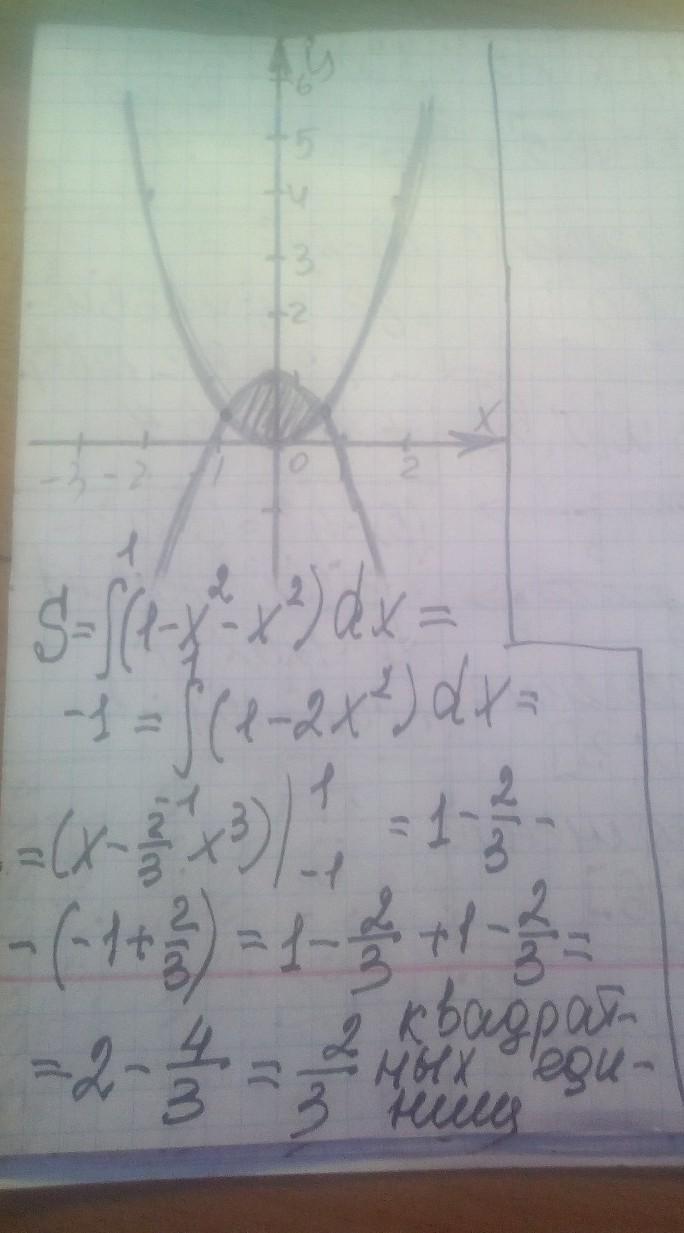 y
6
5
4
3
2
1
-3 -2 -1 0 2 x
S=∫₋₁¹(1-x²-x²)dx=
=∫₋₁¹(1-2x²)dx=
=(x-2/3 x³)|₋₁¹ =1-2/3-
-(-1+2/3)=1-2/3+1-2/3=
=2-4/3=2/3 квадрат-
ных еди-
ниц